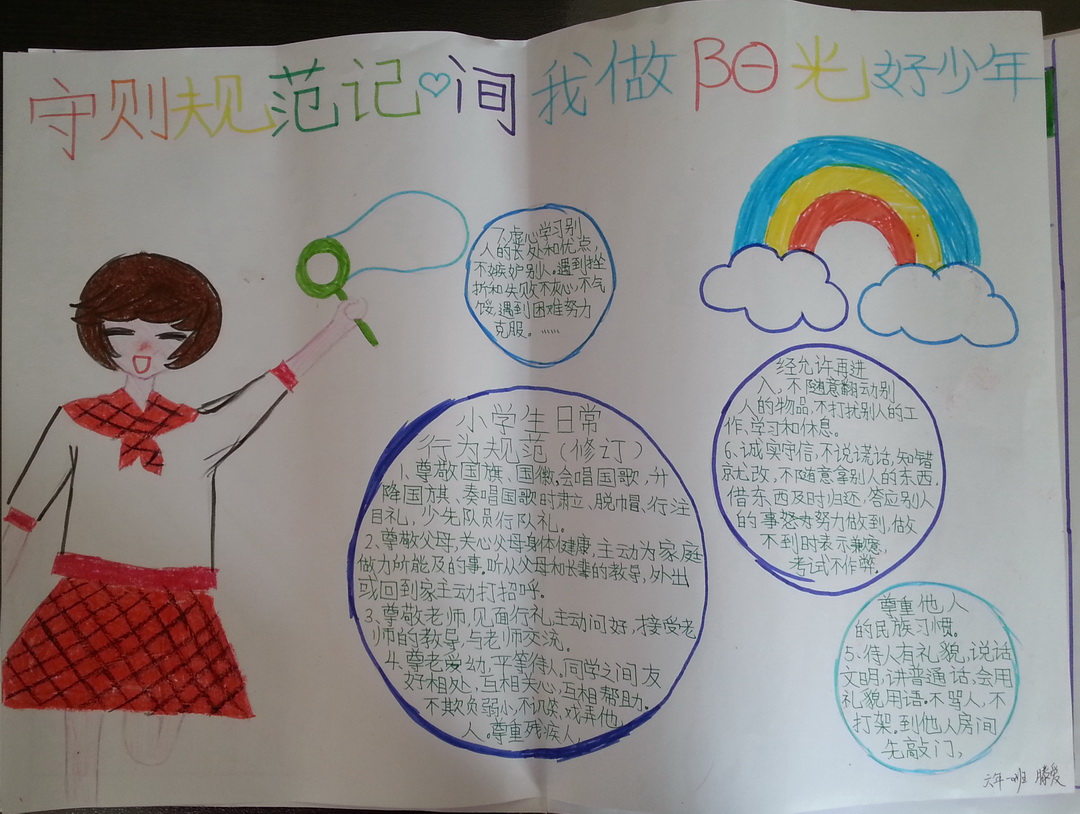 守则规范记♡间 我做阳光好少年
小学生日常
行为规范（修订）
1、尊敬国旗、国徽,会唱国歌,升
降国旗、奏唱国歌时肃立、脱帽、行注
目礼,少先队员行队礼。
2、尊敬父母,关心父母身体健康,主动为家庭
做力所能及的事.听从父母和长辈的教导,外出
或回到家主动打招呼。
3、尊敬老师,见面行礼,主动问好,接受老
师的教导,与老师交流。
4、尊老爱幼,平等待人.同学之间友
好相处,互相关心,互相帮助.
不欺负弱小,不讥笑、戏弄他人
人。尊重残疾人,
尊重他人
的民族习惯。
5、待人有礼貌,说话
文明,讲普通话,会用
礼貌用语.不骂人,不
打架.到他人房间
先敲门,
经允许再进
入,不随意翻动别
人的物品,不打扰别人的工
作、学习和休息.
6、诚实守信,不说谎话,知错
就改,不随意拿别人的东西.
借东西及时归还,答应别人
的事努力做到,做
不到时表示歉意,
考试不作弊.
7、虚心学习别
人的长处和优点,
不嫉妒别人.遇到挫
折和失败不灰心,不气
馁,遇到困难努力
克服。……
六年一班 滕爱